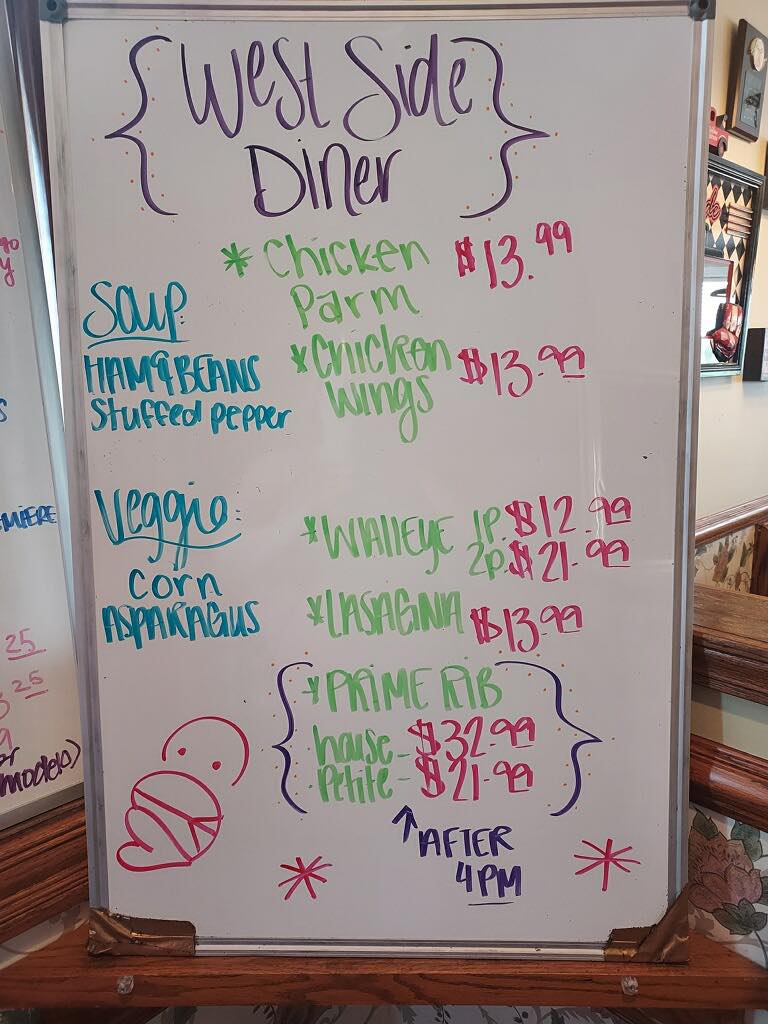 West Side
Diner
* Chicken Parm $13.99
Soup:
HAM & BEANS
Stuffed pepper
* CHICKEN wings $13.99
Veggie:
Corn
ASPARAGUS
* WALLEYE 1P. $12.99
2P. $21.99
* LASAGNA $13.99
* PRIME RIB
house - $32.99
Petite - $21.99
↑ AFTER
4PM
EMIERE
25
25
models)